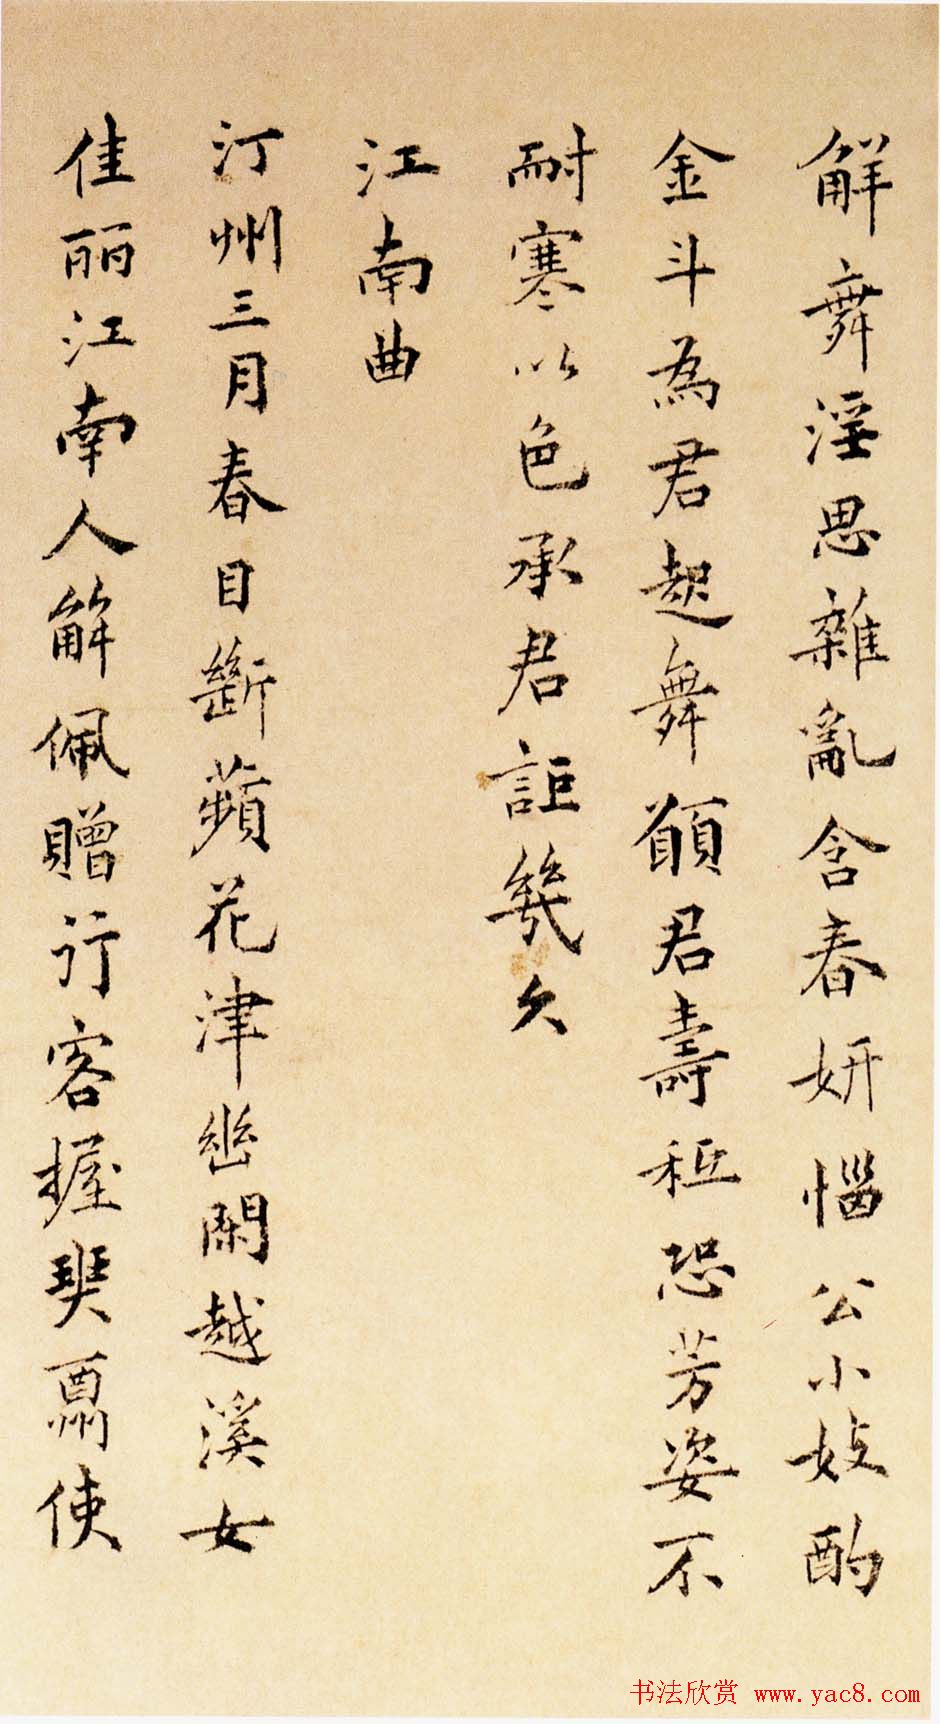 解舞淫思雜亂含春妍惱公小妓酌
金斗為君起舞願君壽秪恐芳姿不
耐寒以色承君詎幾久
江南曲
汀州三月春目斷蘋花津幽閑越溪女
佳丽江南人解佩贈行客握使
书法欣赏 www.yac8.com